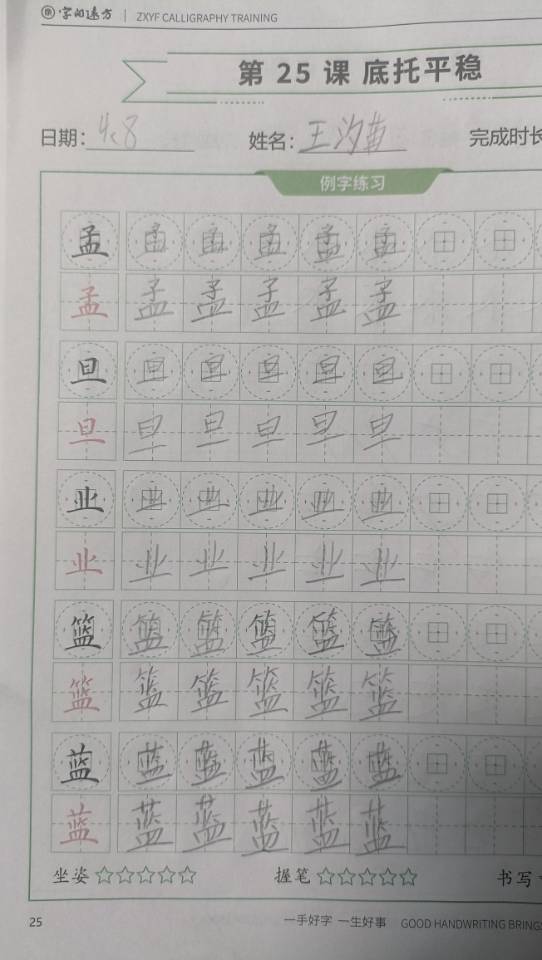 字如远方 | ZXYF CALLIGRAPHY TRAINING
第 25 课 底托平稳
日期: 4.8 姓名: 王汐苗 完成时长
例字练习
孟 孟 孟 孟 孟 孟
孟 孟 孟 孟 孟 孟
旦 旦 旦 旦 旦 旦
旦 旦 旦 旦 旦 旦
业 业 业 业 业 业
业 业 业 业 业 业
篮 篮 篮 篮 篮 篮
篮 篮 篮 篮 篮 篮
蓝 蓝 蓝 蓝 蓝 蓝
蓝 蓝 蓝 蓝 蓝 蓝
坐姿 ☆☆☆☆☆ 握笔 ☆☆☆☆☆ 书写
25 一手好字 一生好事 GOOD HANDWRITING BRINGS